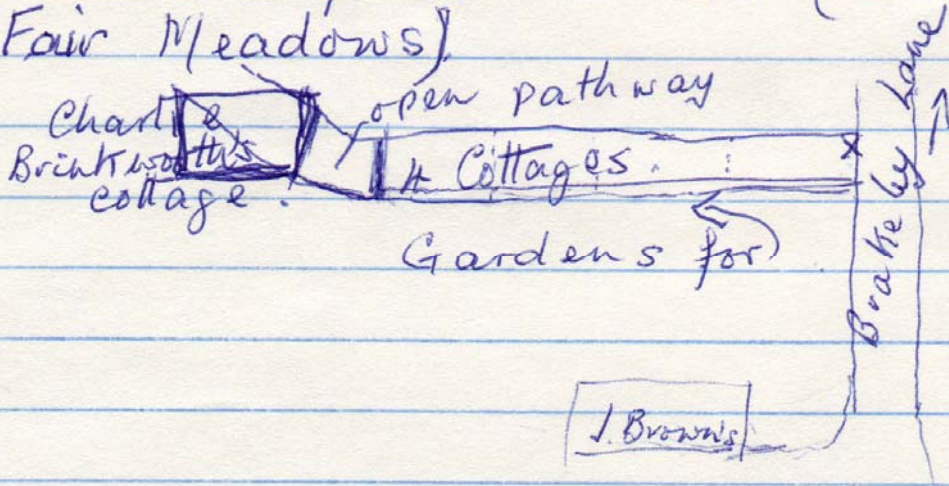 Fair Meadows)
open pathway
Charlie
Brinkworth's
cottage.
4 Cottages.
Gardens for
Brakeley Lane
J. Brown's